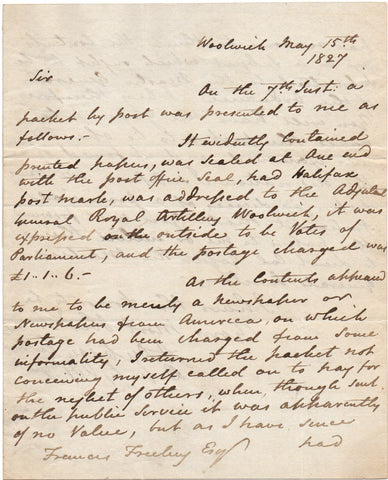 Woolwich May 15th
1827
Sir
On the 7th Inst. a
packet by post was presented to me as
follows.-
It evidently contained
printed papers, was sealed at one end
with the post office seal, had Halifax
post mark, was addressed to the Adjutant
General Royal Artillery Woolwich, it was
expressed on the outside to be Votes of
Parliament, and the postage charged was
£1..1..6.-
As the Contents appeared
to me to be merely a Newspaper or
Newspapers from America, on which
postage had been charged from some
informality, I returned the packet not
conceiving myself called on to pay for
the neglect of others, when, though sent
on the public Service it was apparently
of no Value, but as I have since
had
Francis Freeling Esqr